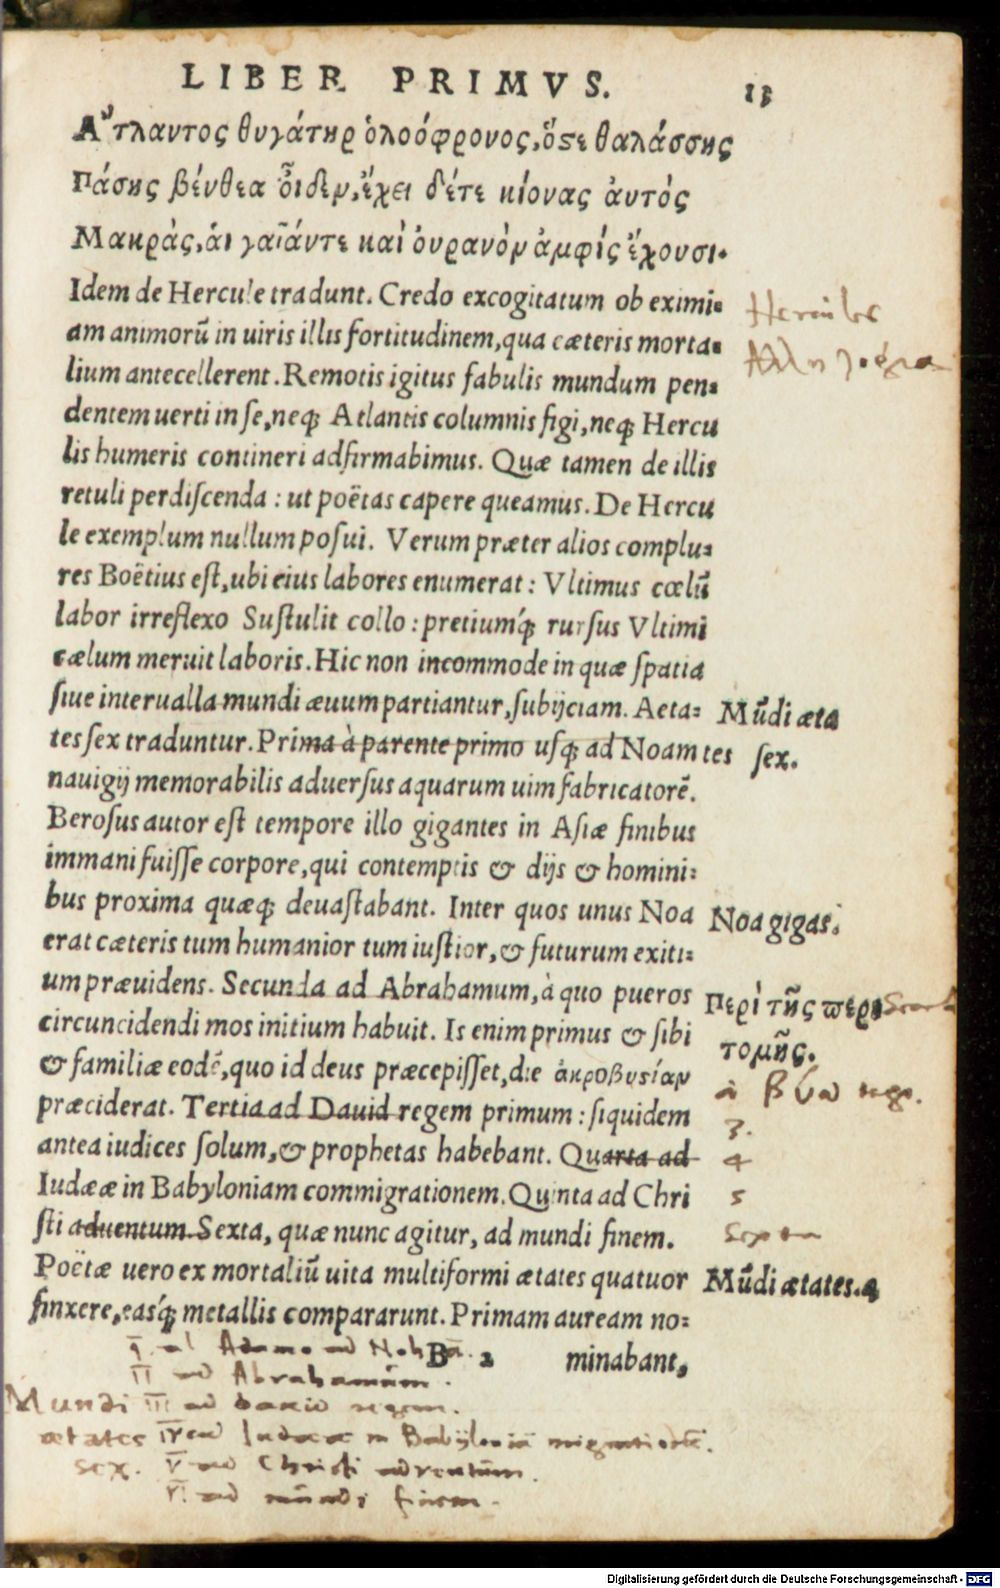 LIBER PRIMVS. 13
Ἄτλαντος θυγάτηρ ὀλοόφρονος, ὅςε θαλάσσης
Πάσης βένθεα οἶδεν, ἔχει δέτε κίονας ἀυτός
Μακράς, ἁι γαῖάντε καὶ ὀυρανὸν ἀμφίς ἔχουσι.
Idem de Hercule tradunt. Credo excogitatum ob eximi=
am animorũ in uiris illis fortitudinem, qua cæteris morta=
lium antecellerent. Remotis igitus fabulis mundum pen=
dentem uerti in ſe, neq; Atlantis columnis figi, neq; Hercu
lis humeris contineri adfirmabimus. Quæ tamen de illis
retuli perdiſcenda: ut poëtas capere queamus. De Hercu
le exemplum nullum poſui. Verum præter alios complu=
res Boëtius eſt, ubi eius labores enumerat: Vltimus cœlũ
labor irreflexo Suſtulit collo: pretiumq́; rurſus Vltimi
cælum meruit laboris. Hic non incommode in quæ ſpatia
ſiue interualla mundi æuum partiantur, ſubijciam. Aeta=
tes ſex traduntur. Prima à parente primo uſq; ad Noam
nauigij memorabilis aduerſus aquarum uim fabricatorẽ.
Beroſus autor eſt tempore illo gigantes in Aſiæ finibus
immani fuiſſe corpore, qui contemptis & dijs & homini=
bus proxima quæq; deuaſtabant. Inter quos unus Noa
erat cæteris tum humanior tum iuſtior, & futurum exiti=
um præuidens. Secunda ad Abrahamum, à quo pueros
circuncidendi mos initium habuit. Is enim primus & ſibi
& familiæ eodẽ, quo id deus præcepiſſet, die ἀκροβυσίαν
præciderat. Tertia ad Dauid regem primum: ſiquidem
antea iudices ſolum, & prophetas habebant. Quarta ad
Iudææ in Babyloniam commigrationem. Quinta ad Chri
ſti aduentum. Sexta, quæ nunc agitur, ad mundi finem.
Poëtæ uero ex mortaliũ uita multiformi ætates quatuor
finxere, easq́; metallis compararunt. Primam auream no=
B 2 minabant,
Hercules
Mũdi æta
tes ſex.
Noa gigas.
Περὶ τῆς περι
τομῆς.
3.
4
5
Sexta
Mũdi ætates.4
I ab Adamo ad Noham.
II ad Abrahamum.
Mundi III ad regem.
ætates IV ad Iudææ in Babyloniã migrationẽ.
sex. V ad Christi adventum.
VI ad mundi finem.
Digitalisierung gefördert durch die Deutsche Forschungsgemeinschaft - DFG